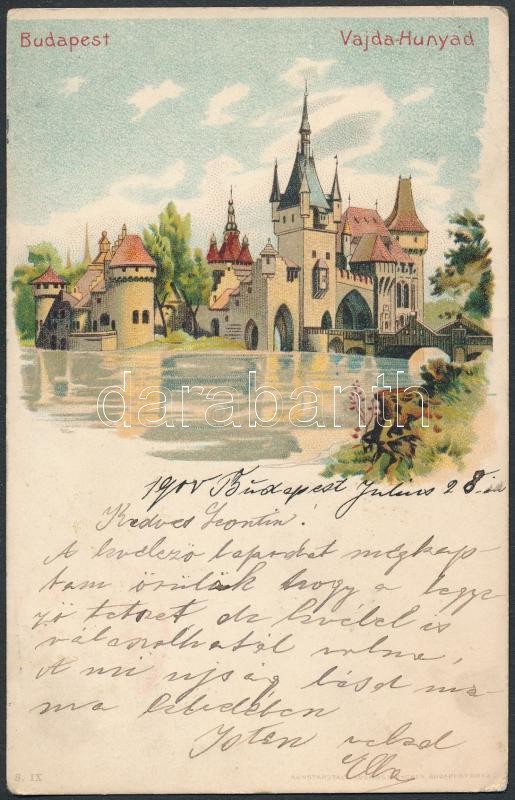 Budapest
Vajda-Hunyad
darabanth
1900 Budapest Julius 28-án
Kedves Leontin!
A levelező lapodat megkap
tam örülök hogy a legye
ző tetszet de levélel is
válaszolhatál volna,
A mi ujság lásd ma
ma levelében
Isten veled
Ella
S. IX